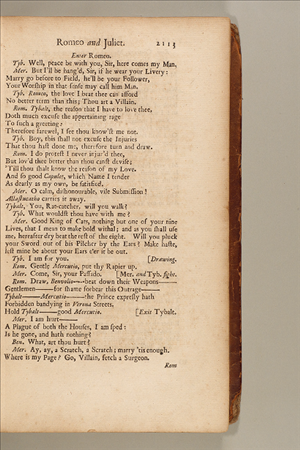 Romeo and Juliet. 2113
Enter Romeo.
Tyb. Well, peace be with you, Sir, here comes my Man.
Mer. But I'll be hang'd, Sir, if he wear your Livery:
Marry go before to Field, he'll be your Follower,
Your Worship in that sense may call him Man.
Tyb. Romeo, the love I bear thee can afford
No better term than this; Thou art a Villain.
Rom. Tybalt, the reason that I have to love thee,
Doth much excuse the appertaining rage
To such a greeting:
Therefore farewel, I see thou know'st me not.
Tyb. Boy, this shall not excuse the Injuries
That thou hast done me, therefore turn and draw.
Rom. I do protest I never injur'd thee,
But lov'd thee better than thou canst devise;
'Till thou shalt know the reason of my Love.
And so good Capulet, which Name I tender
As dearly as my own, be satisfied.
Mer. O calm, dishonourable, vile Submission!
Allastucatho carries it away.
Tybalt, You, Rat-catcher, will you walk?
Tyb. What wouldst thou have with me?
Mer. Good King of Cats, nothing but one of your nine
Lives, that I mean to make bold withal; and as you shall use
me, hereafter dry beat the rest of the eight. Will you pluck
your Sword out of his Pilcher by the Ears? Make haste,
lest mine be about your Ears e'er it be out.
Tyb. I am for you. [Drawing.
Rom. Gentle Mercutio, put thy Rapier up.
Mer. Come, Sir, your Passado. [Mer. and Tyb. fight.
Rom. Draw, Benvolio——beat down their Weapons——
Gentlemen——for shame forbear this Outrage——
Tybalt——Mercutio——the Prince expresly hath
Forbidden bandying in Verona Streets.
Hold Tybalt——good Mercutio. [Exit Tybalt.
Mer. I am hurt——
A Plague of both the Houses, I am sped:
Is he gone, and hath nothing?
Ben. What, art thou hurt?
Mer. Ay, ay, a Scratch, a Scratch; marry 'tis enough.
Where is my Page? Go, Villain, fetch a Surgeon.
Rom